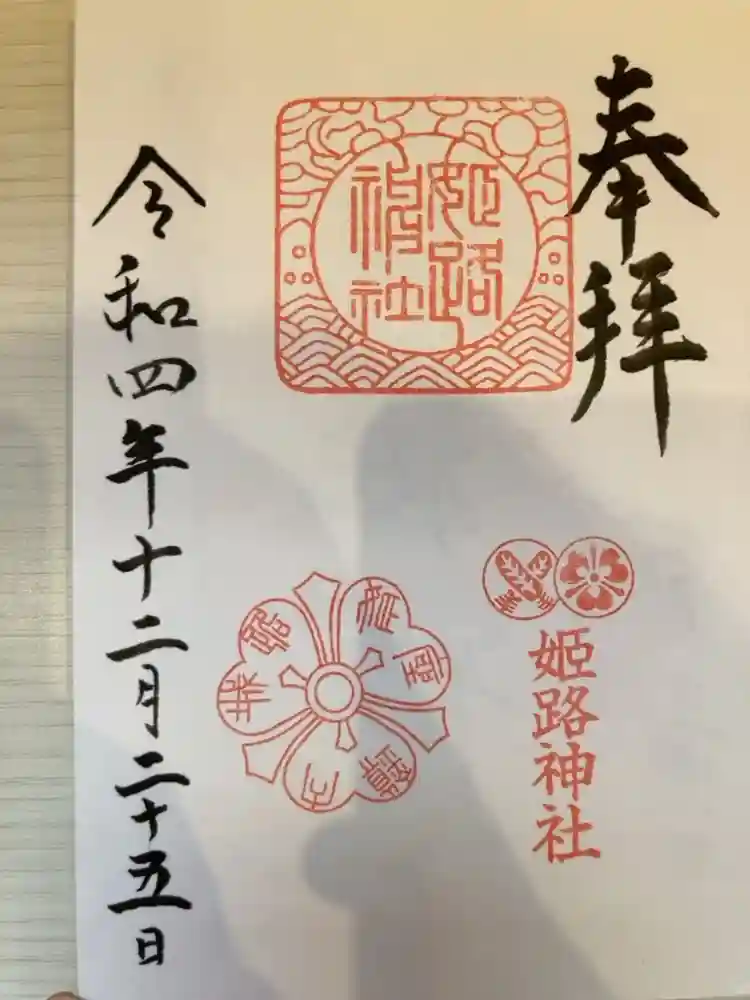 奉拝
姫路神社
姫路神社
令和四年十二月二十五日